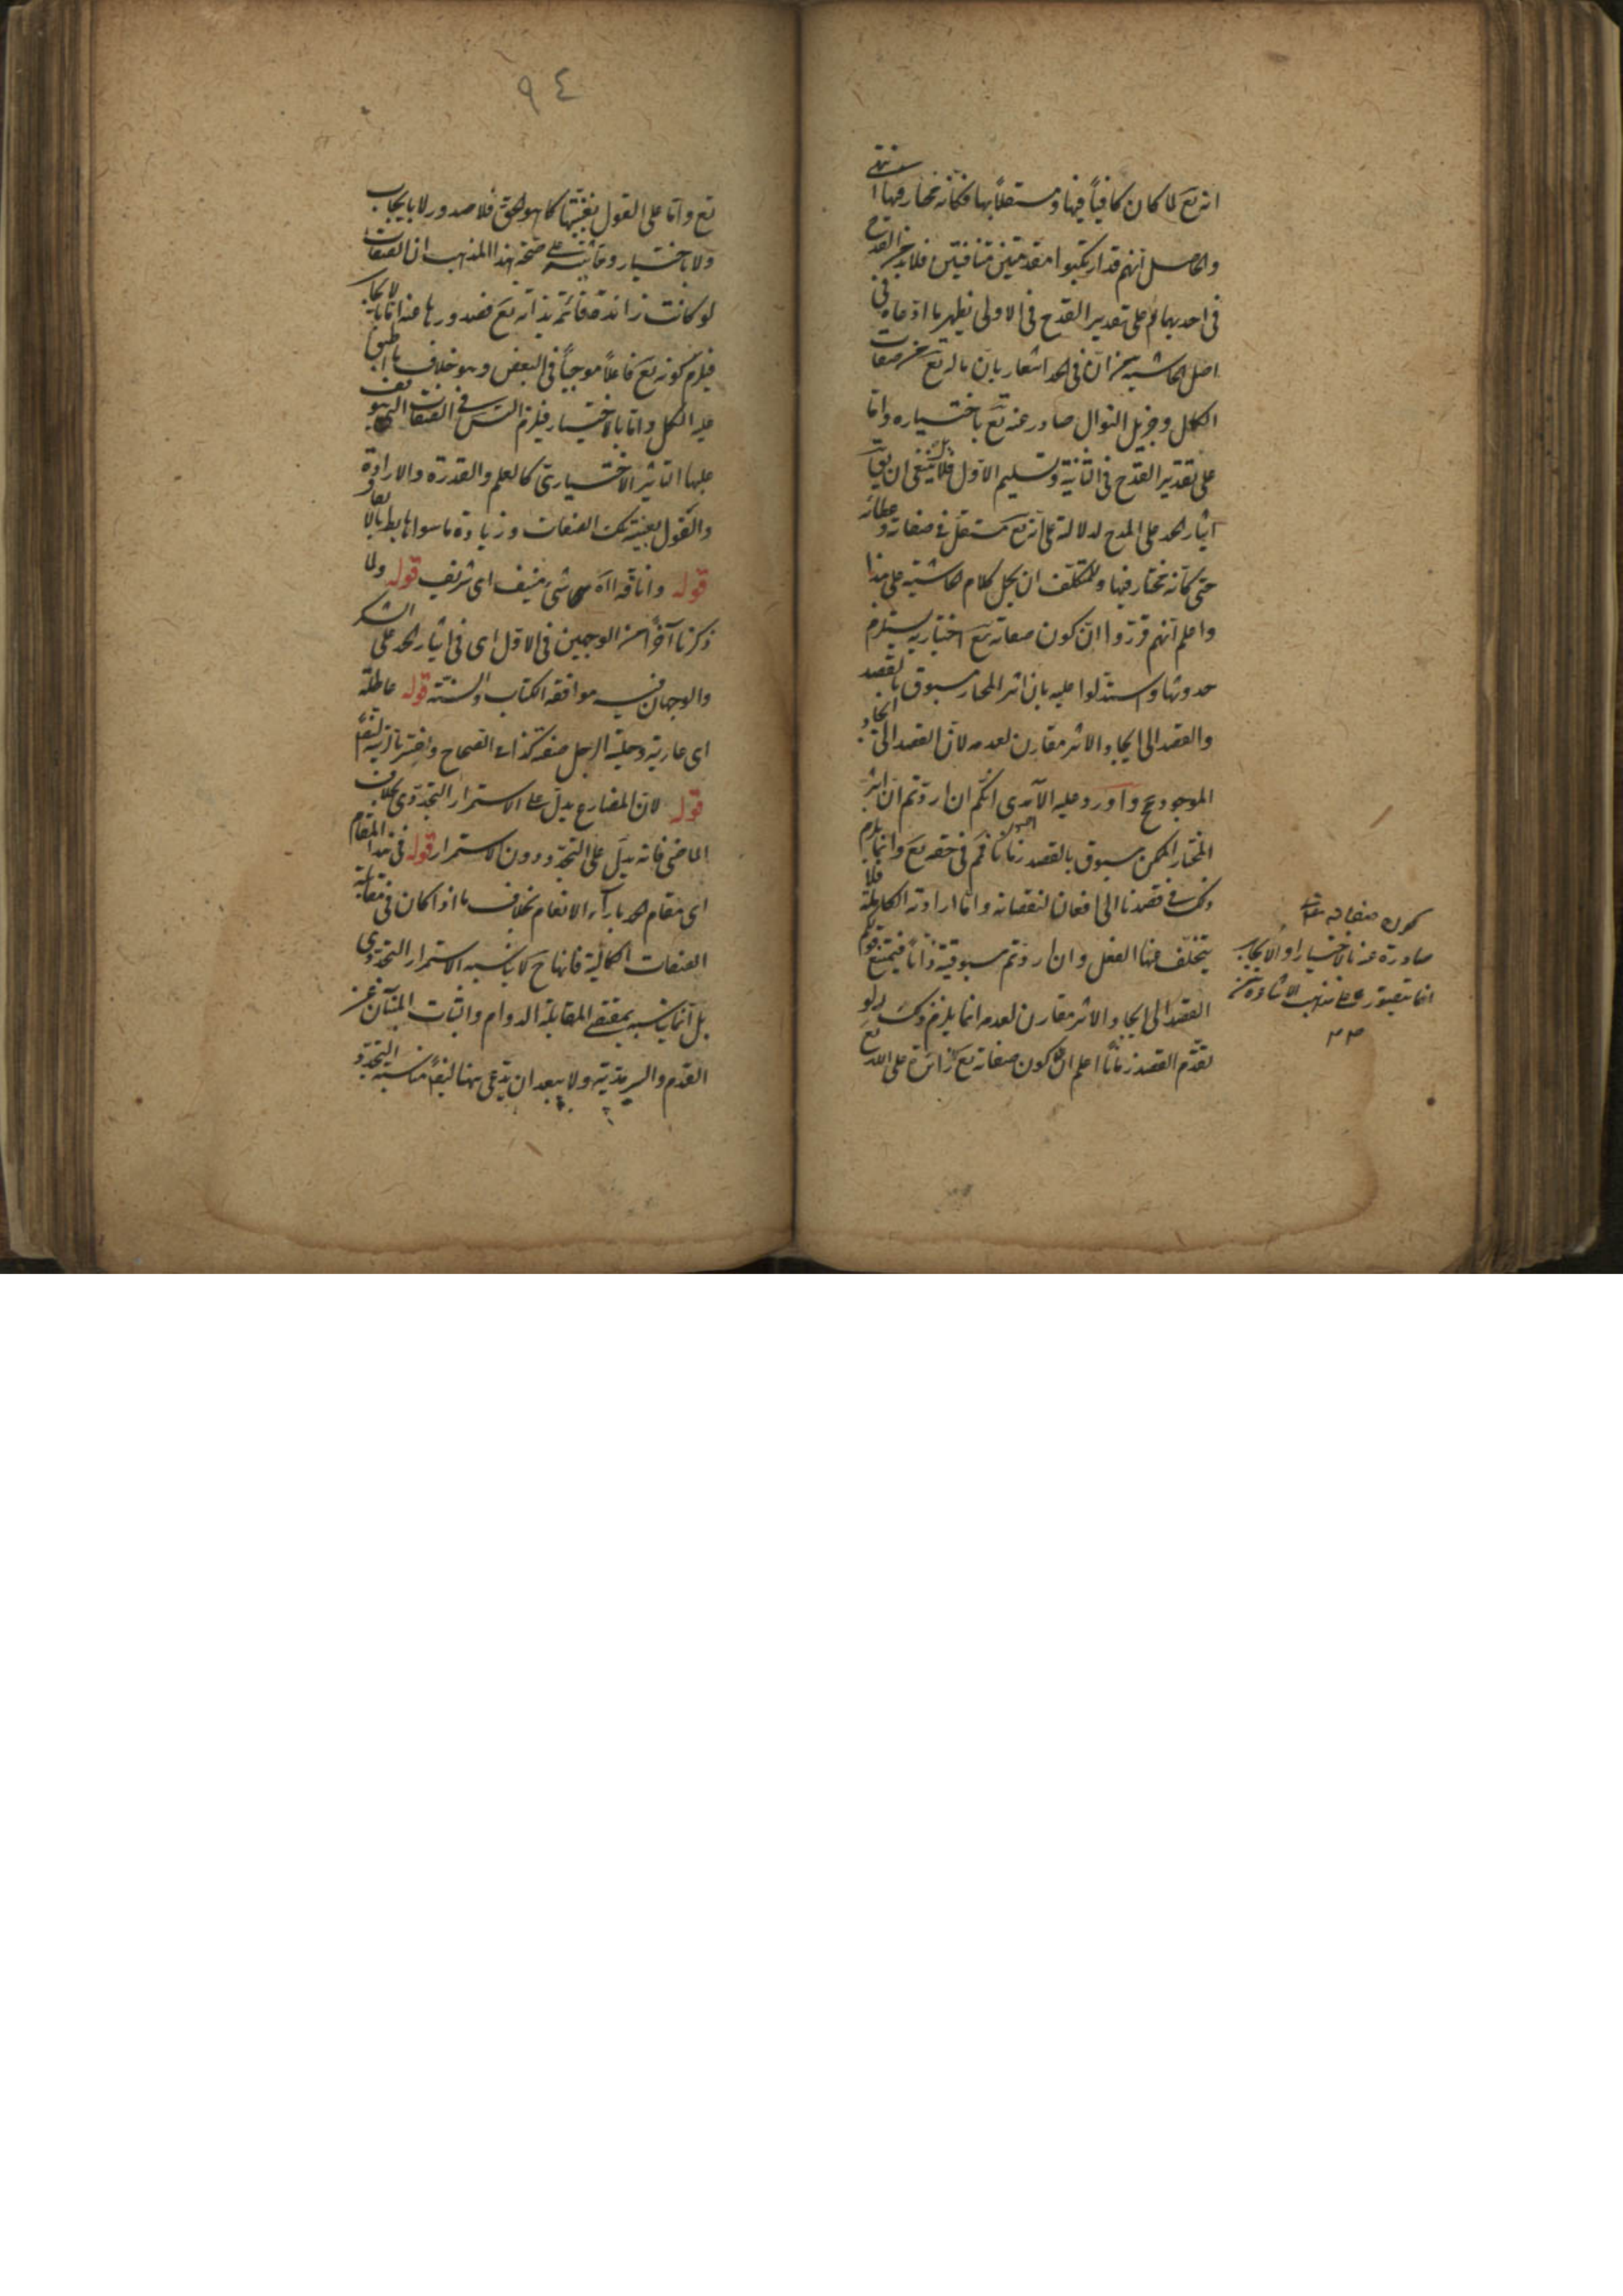 انه تع لما كان كافياً فيها ومستقلاً بها فكأنه مختار فيها انتهى
والحاصل أنهم قد ارتكبوا مقدمتين متنافيتين فلا بد من القدح
في احديهما ثم على تقدير القدح في الاولى يظهر ما ادعاه في
اصل الحاشية من أن في الحمد اشعار بان ماله تع من صفات
الكمال وجزيل النوال صادر عنه تع باختياره واما
على تقدير القدح في الثانية وتسليم الاول فلا ينبغي ان يق
ايثار الحمد على المدح لدلالته على أنه تع مستقل في صفاته وعطائه
حتى كأنه مختار فيها وللمتكلف ان يحمل كلام الحاشية على هذا
واعلم أنهم قرروا ان كون صفاته تع اختيارية يستلزم
حدوثها واستدلوا عليه بان اثر المختار مسبوق بالقصد
والقصد الى الايجاد والاثر مقارن لعدمه لان القصد الى ايجاد
الموجود مح واورد عليه الآمدي انكم ان اردتم ان اثر
المختار الممكن مسبوق بالقصد زمانا فم في حقه تع وانما يلزم
ذلك في قصدنا الى افعالنا لنقصانه واما ارادته الكاملة فلا
يتخلف عنها الفعل وان اردتم مسبوقيته ذاتاً فيمتنع قولكم
القصد الى الايجاد والاثر مقارن لعدمه انما يلزم ذلك لو
تقدم القصد زماناً اعلم ان كون صفاته تع زائدة على الله تع
كون صفاته تع
صادرة عنه بالاختيار او الايجاب
انما يتصور على مذهب الاشاعرة
٩٤
تع واما على القول بعينيتها كما هو الحق فلا صدور لا بايجاب
ولا باختيار ومما ينبه على صحة هذا المذهب ان الصفات
لو كانت زائدة قائمة بذاته تع فصدورها عنه اما بالايجاب
فيلزم كونه تع فاعلاً موجباً في البعض وهو خلاف ما اطبق
عليه الكل واما بالاختيار فيلزم التس في الصفات التي يتوقف
عليها التأثير الاختياري كالعلم والقدرة والارادة
والقول بعينية تلك الصفات وزيادة ما سواها بط بالاتفاق
قوله وانافة اه شي منيف اي شريف قوله ولما
ذكرنا آخراً من الوجهين في الاول اي في ايثار الحمد على الشكر
والوجهان فيه موافقة الكتاب والسنة قوله عاطلة
اي عارية وحلية الرجل صفته كذا في الصحاح
قوله لان المضارع يدل على الاستمرار التجددي بخلاف
الماضي فانه يدل على التجدد دون الاستمرار قوله في هذا المقام
اي مقام الحمد بازاء الانعام بخلاف ما اذا كان في مقابلة
الصفات الكمالية فانها ح لا يناسبه الاستمرار التجددي
بل انما يناسبه بمقتضى المقابلة الدوام والثبات المنبئان عن
القدم والسرمدية ولا يبعد ان يدعى ههنا ايضاً مناسبة التجدد